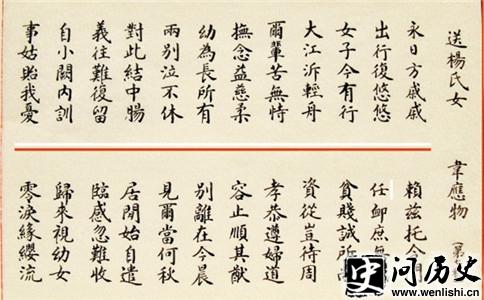 送楊氏女
永日方戚戚
出行復悠悠
女子今有行
大江泝輕舟
爾輩苦無恃
撫念益慈柔
幼為長所有
兩別泣不休
對此結中腸
義往難復留
自小闕內訓
事姑貽我憂
韋應物
賴兹托令
任卹庶無
貧賤誠所
資從豈待周
孝恭遵婦道
容止順其猷
別離在今晨
見爾當何秋
居閒始自遣
臨感忽難收
歸來視幼女
零淚緣纓流
史问历史
www.wenlishi.cn